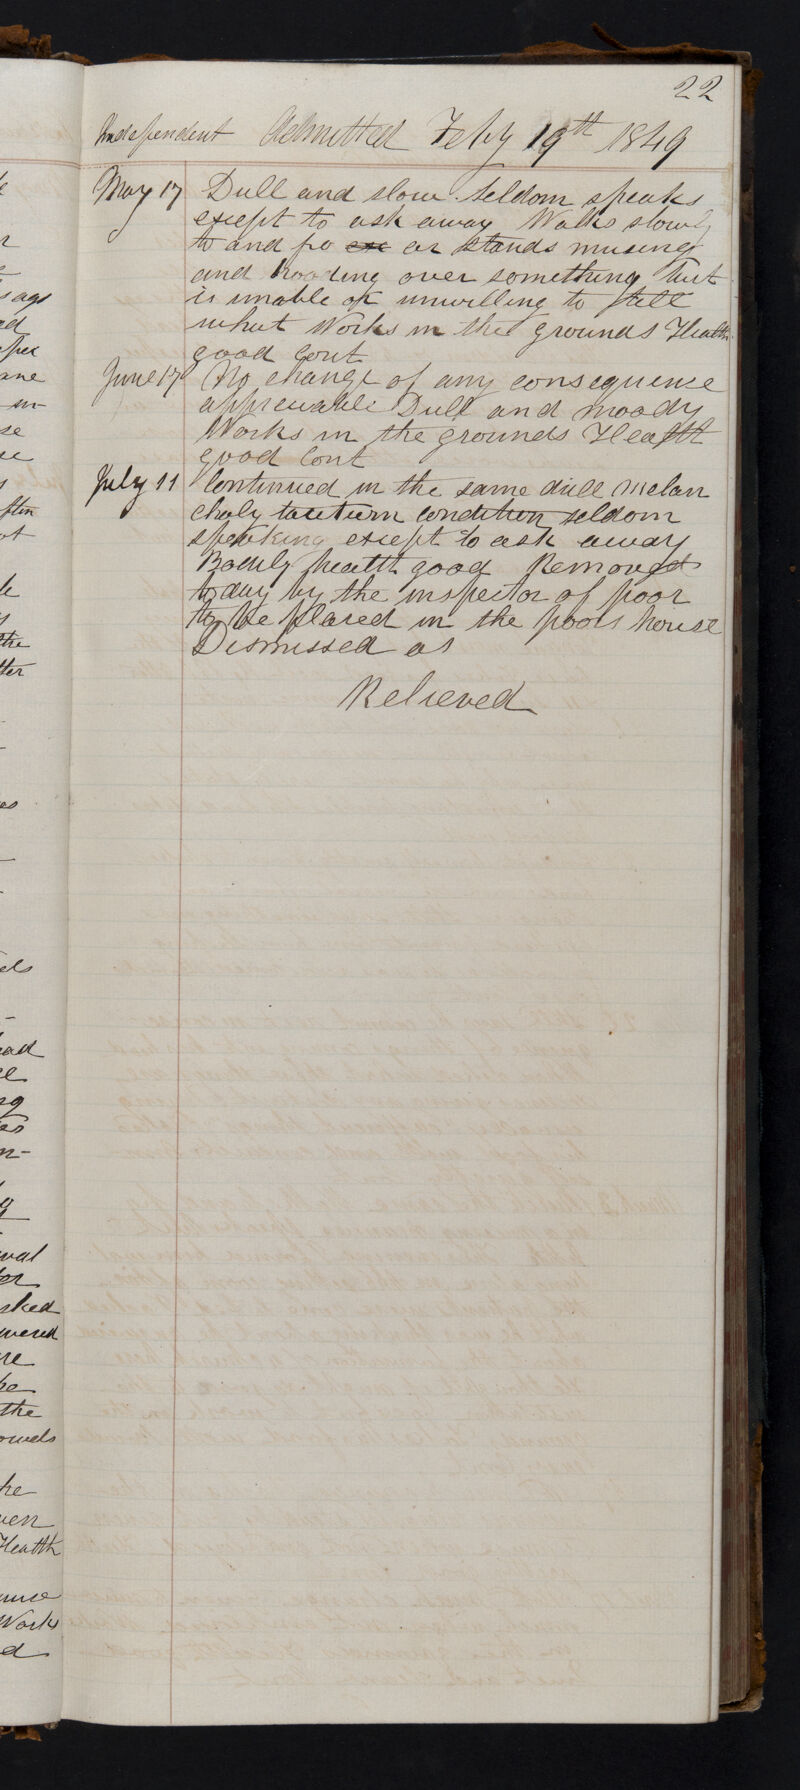 22
Independent Admitted Feby 19th 1849
May 17 Dull and slow. Seldom speaks
except to ask away Walks slowly
to and fro or stands musing
and brooding over something but
is unable or unwilling to tell
what Works in the grounds Health
good Cont
June 17 No change of any consequence
appreciable Dull and moody
Works in the grounds Health
good Cont
July 11 Continued in the same dull melan
choly taciturn condition seldom
speaking except to ask away
Bodily health good Removed
today by the inspector of poor
to be placed in the poors house
Dismissed as
Relieved